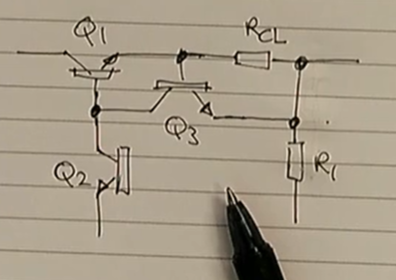 Q1
RCL
Q3
Q2
R1